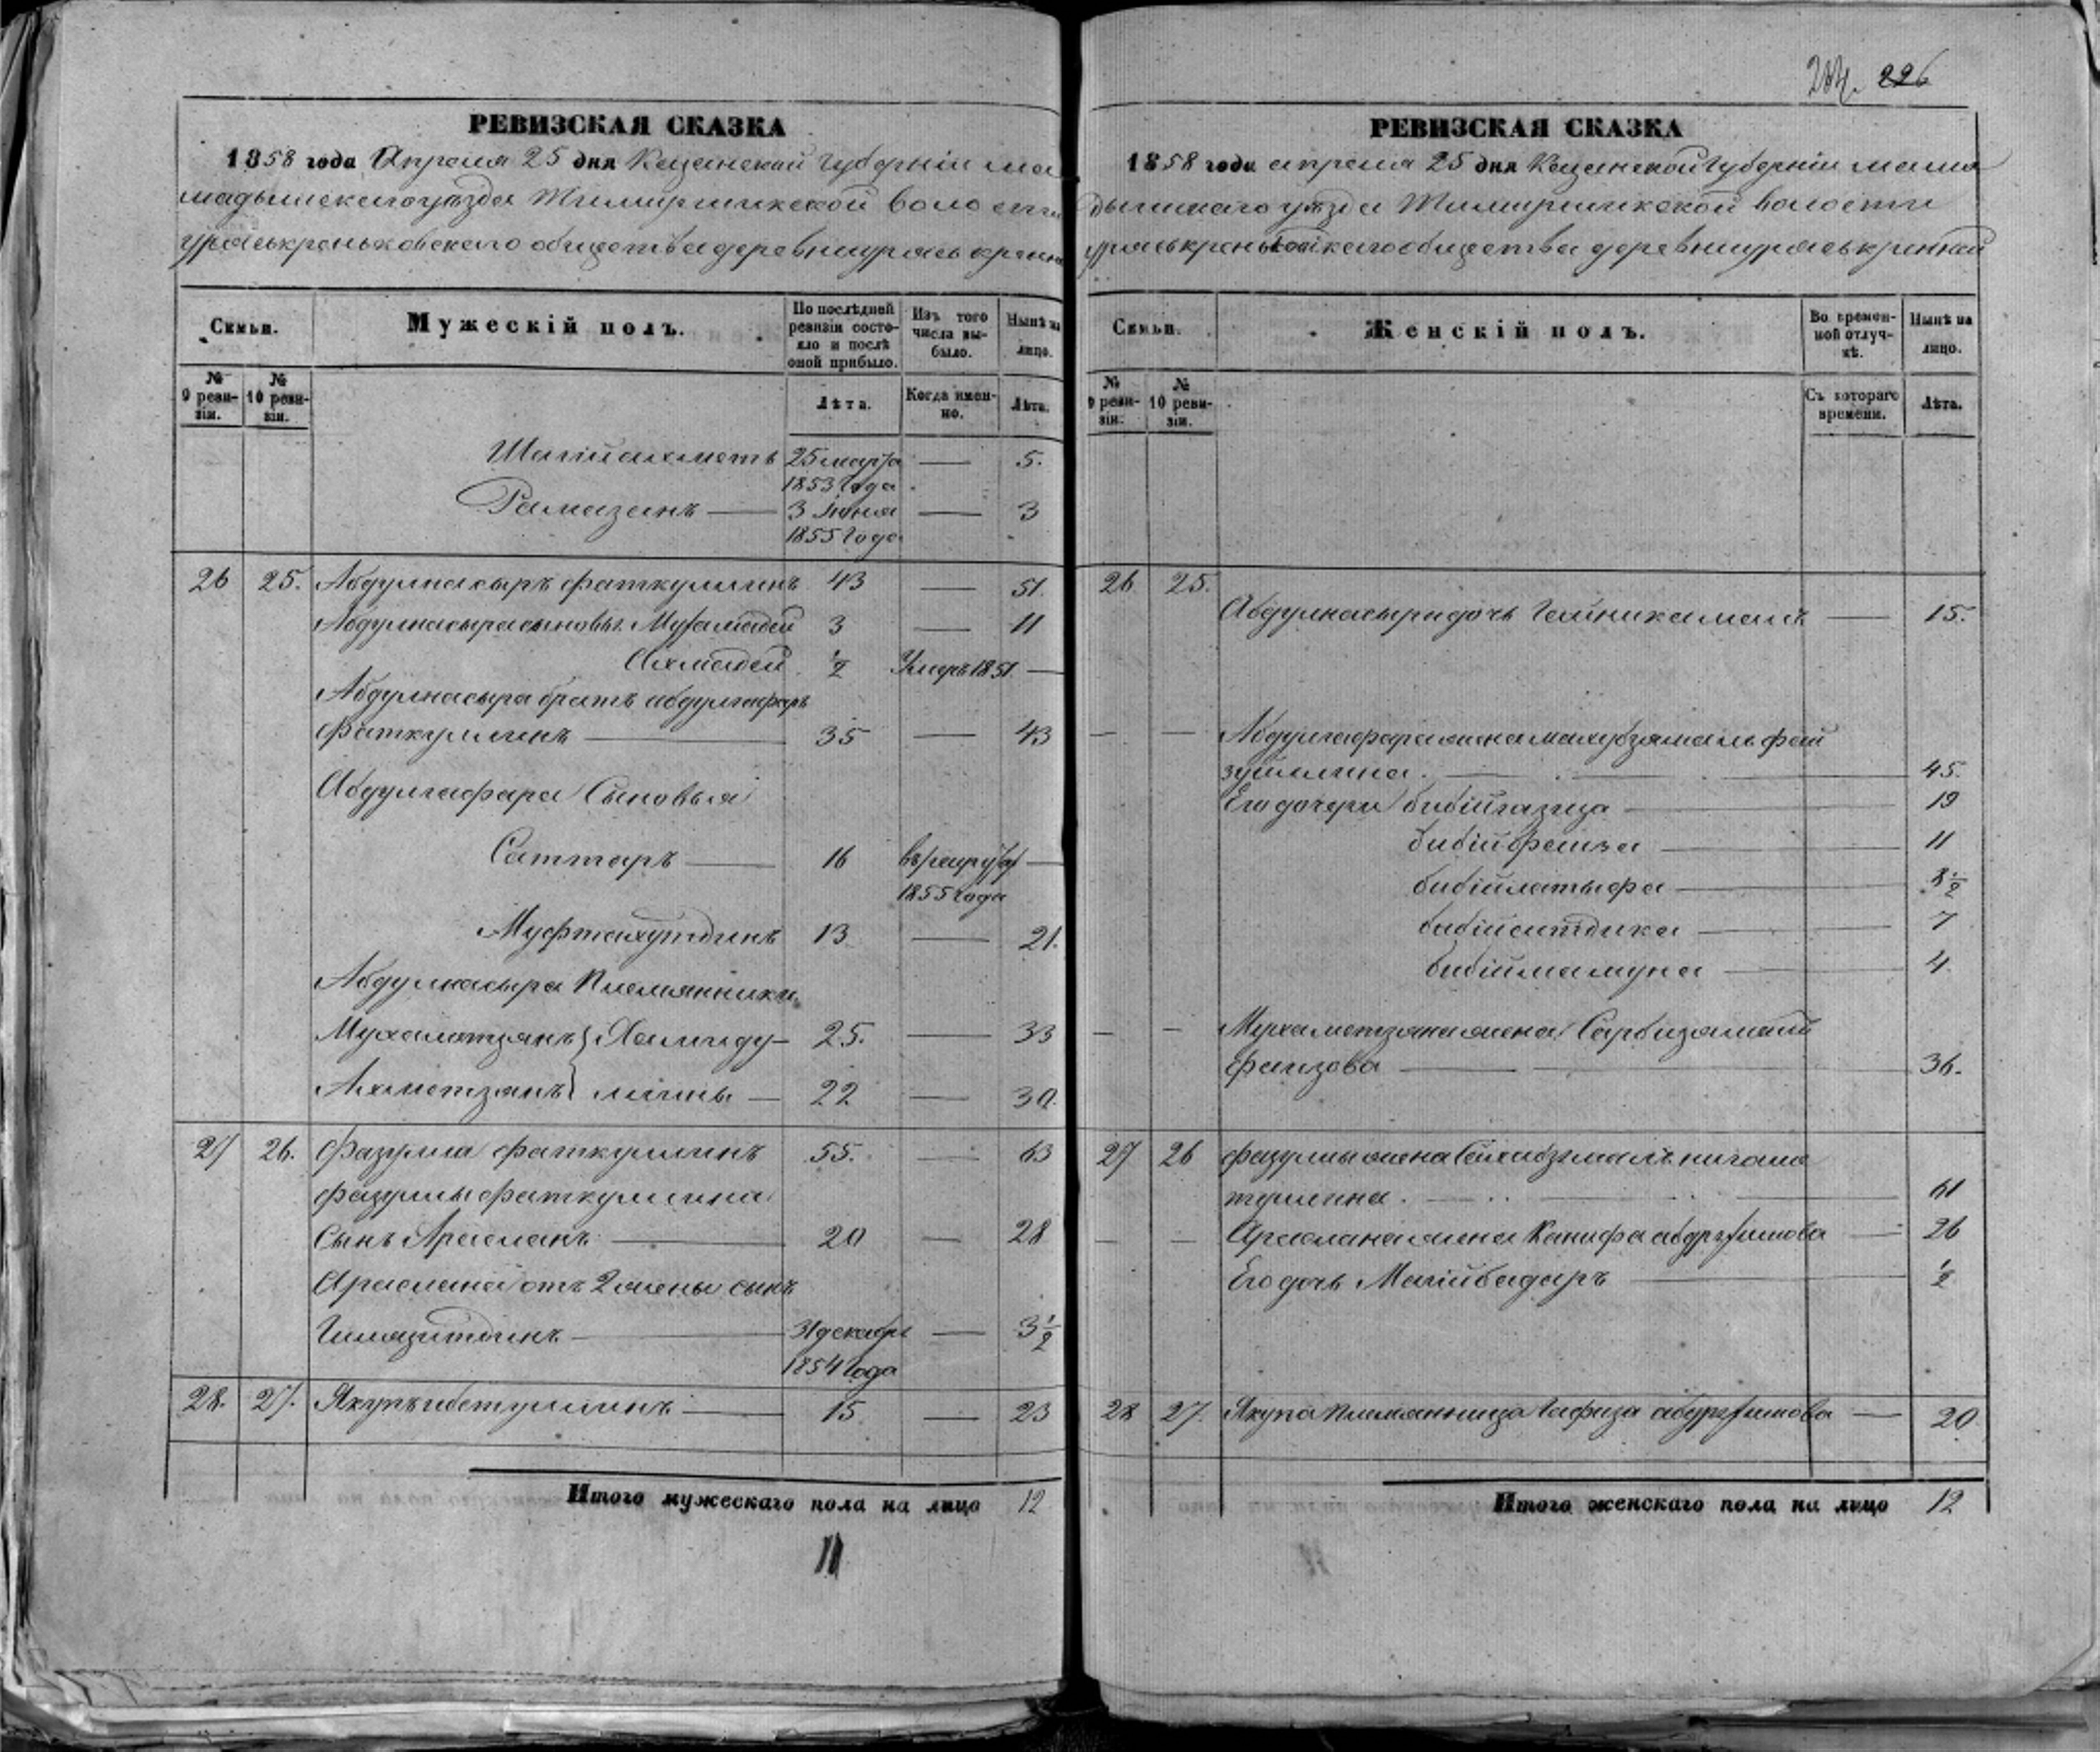 226
РЕВИЗСКАЯ СКАЗКА
1858 года Апреля 25 дня Казанской губерніи ма
мадышскаго уѣзда Тимиршикской волости
ураськраньковскаго общества деревни
Семьи.
Мужескій полъ.
По послѣдней ревизіи состояло и послѣ оной прибыло.
Изъ того числа выбыло.
Нынѣ на лицо.
№ 9 ревизіи.
№ 10 ревизіи.
Лѣта.
Когда именно.
Лѣта.
Шагійахметъ 25 марта — 5.
1853 года
Рамазанъ — 3 Іюня — 3
1855 года
26 25. Абдулнасыръ Фаткуллинъ 43 — 51.
Абдулнасыра сыновья Мухамадей 3 — 11
Ахмадей ½ Умеръ 1851. —
Абдулнасыра братъ абдулгафаръ
Фаткуллинъ — 35 — 43
Абдулгафара Сыновья
Саттаръ — 16 —
1855 года
Муфтахутдинъ 13 — 21.
Абдулнасыра Племянники
Мухаметзянъ } Хамиду- 25. — 33
Ахметзянъ } лины — 22 — 30.
27 26. Фазулла Фаткуллинъ 55. — 63
Фазуллы Фаткуллина
Сынъ Арасланъ — 20 — 28
Араслана отъ 2 жены сынъ
Гилязитдинъ — 31 декабр — 3½
1854 года
28. 27. Якупъ ибетуллинъ — 15 — 23
Итого мужескаго пола на лицо 12
11
РЕВИЗСКАЯ СКАЗКА
1858 года апреля 25 дня Казанской губерніи мама
дышскаго уѣзда Тимиршикской волости
общества деревни
Семьи.
Женскій полъ.
Во временной отлучкѣ.
Нынѣ на лицо.
№ 9 ревизіи.
№ 10 ревизіи.
Съ котораго времени.
Лѣта.
26 25.
Абдулнасыра дочь Гайникамалъ — 15.
— — Абдулгафара жена махубзямаль фай
зуллина. — 45.
Его дочери бибійгазиза — 19
бибійфаиза — 11
бибійлатыфа — 8½
бибійситдика — 7
бибіймамуна — 4.
— — Мухаметзяна жена Сарбизямалъ
фаизова — 36.
27 26 фазуллы жена нигама
туллина. — 61
— — Араслана жена Ханифа — 26
Его дочь Магійбадаръ — ½
28 27. Якупа племянница Гафиза — 20
Итого женскаго пола на лицо 12